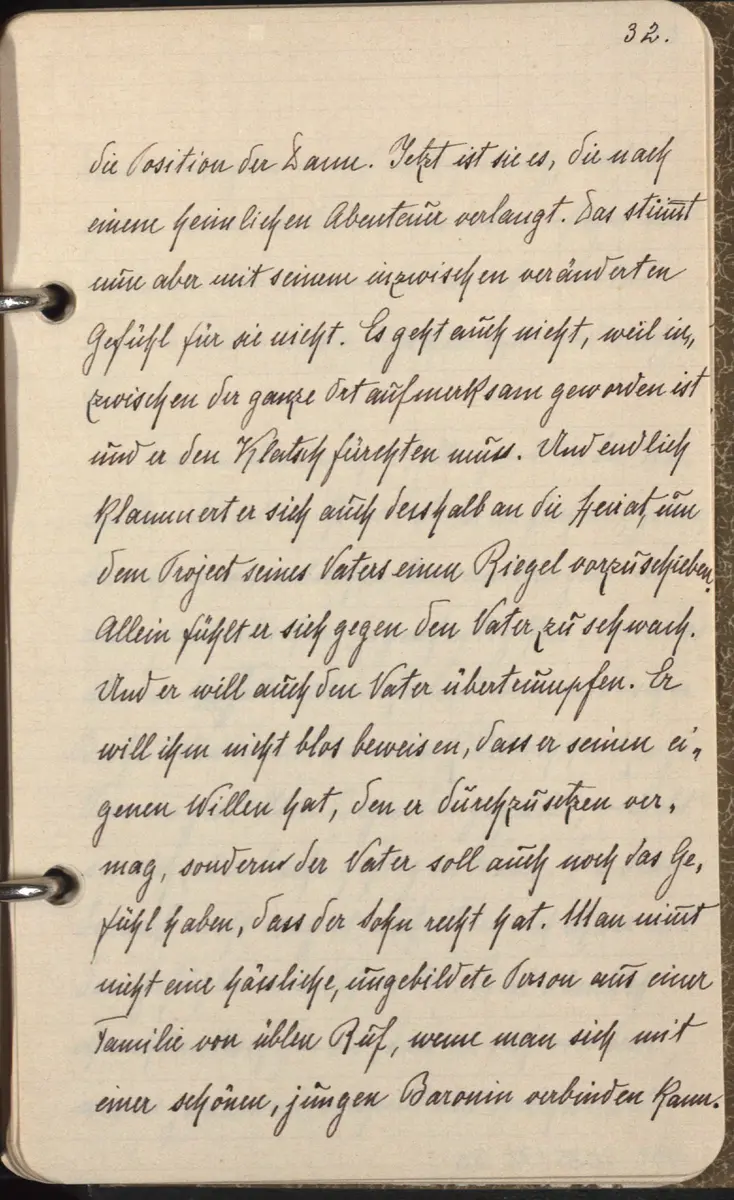 32.
die Position der Dame. Jetzt ist sie es, die nach
einem heimlichen Abenteuer verlangt. Das stim̄t
nun aber mit seinem inzwischen veränderten
Gefühl für sie nicht. Es geht auch nicht, weil in„
zwischen der ganze Ort aufmerksam geworden ist
und er den Klatsch fürchten muss. Und endlich
klammert er sich auch desshalb an die Heirat, um
dem Project seines Vaters einen Riegel vorzuschieben.
Allein fühlt er sich gegen den Vater zu schwach.
Und er will auch den Vater übertrumpfen. Er
will ihm nicht blos beweisen, dass er seinen ei„
genen Willen hat, den er durchzusetzen ver„
mag, sondern der Vater soll auch noch das Ge„
fühl haben, dass der Sohn recht hat. Man nim̄t
nicht eine hässliche, ungebildete Person aus einer
Familie von üblen Ruf, wenn man sich mit
einer schönen, jungen Baronin verbinden kann.